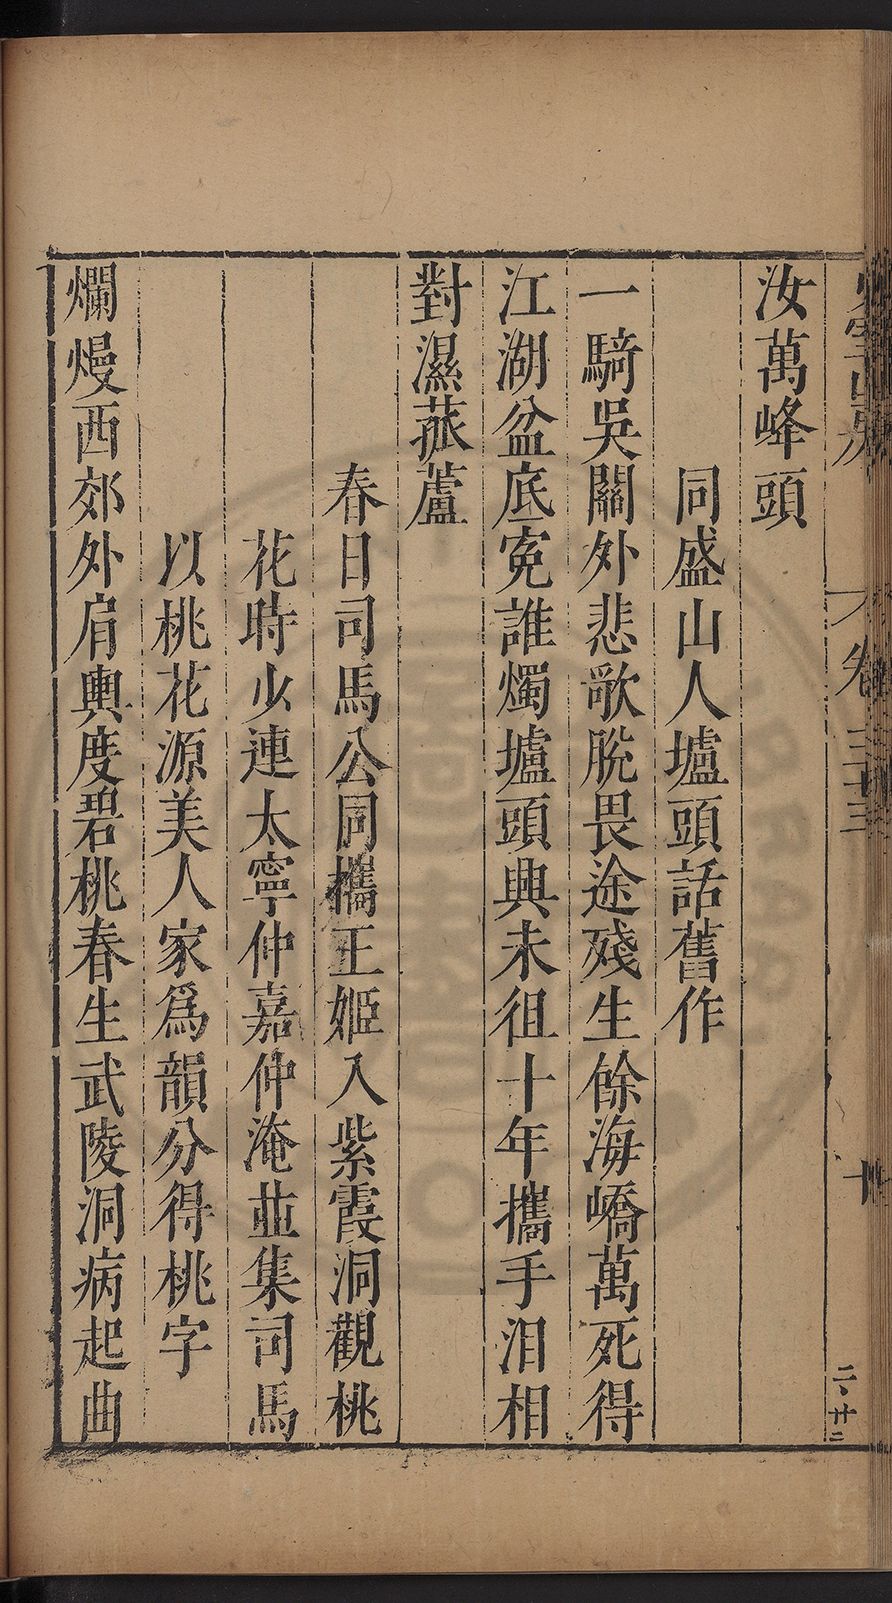 卷三十三
十
二·廿二
汝萬峰頭
同盛山人壚頭話舊作
一騎吳關外悲歌脫畏途殘生餘海嶠萬死得
江湖盆底寃誰燭壚頭興未徂十年攜手淚相
對濕菰蘆
春日司馬公同攜王姬入紫霞洞觀桃
花時少連太寧仲嘉仲淹並集司馬
以桃花源美人家爲韻分得桃字
爛熳西郊外肩輿度碧桃春生武陵洞病起曲